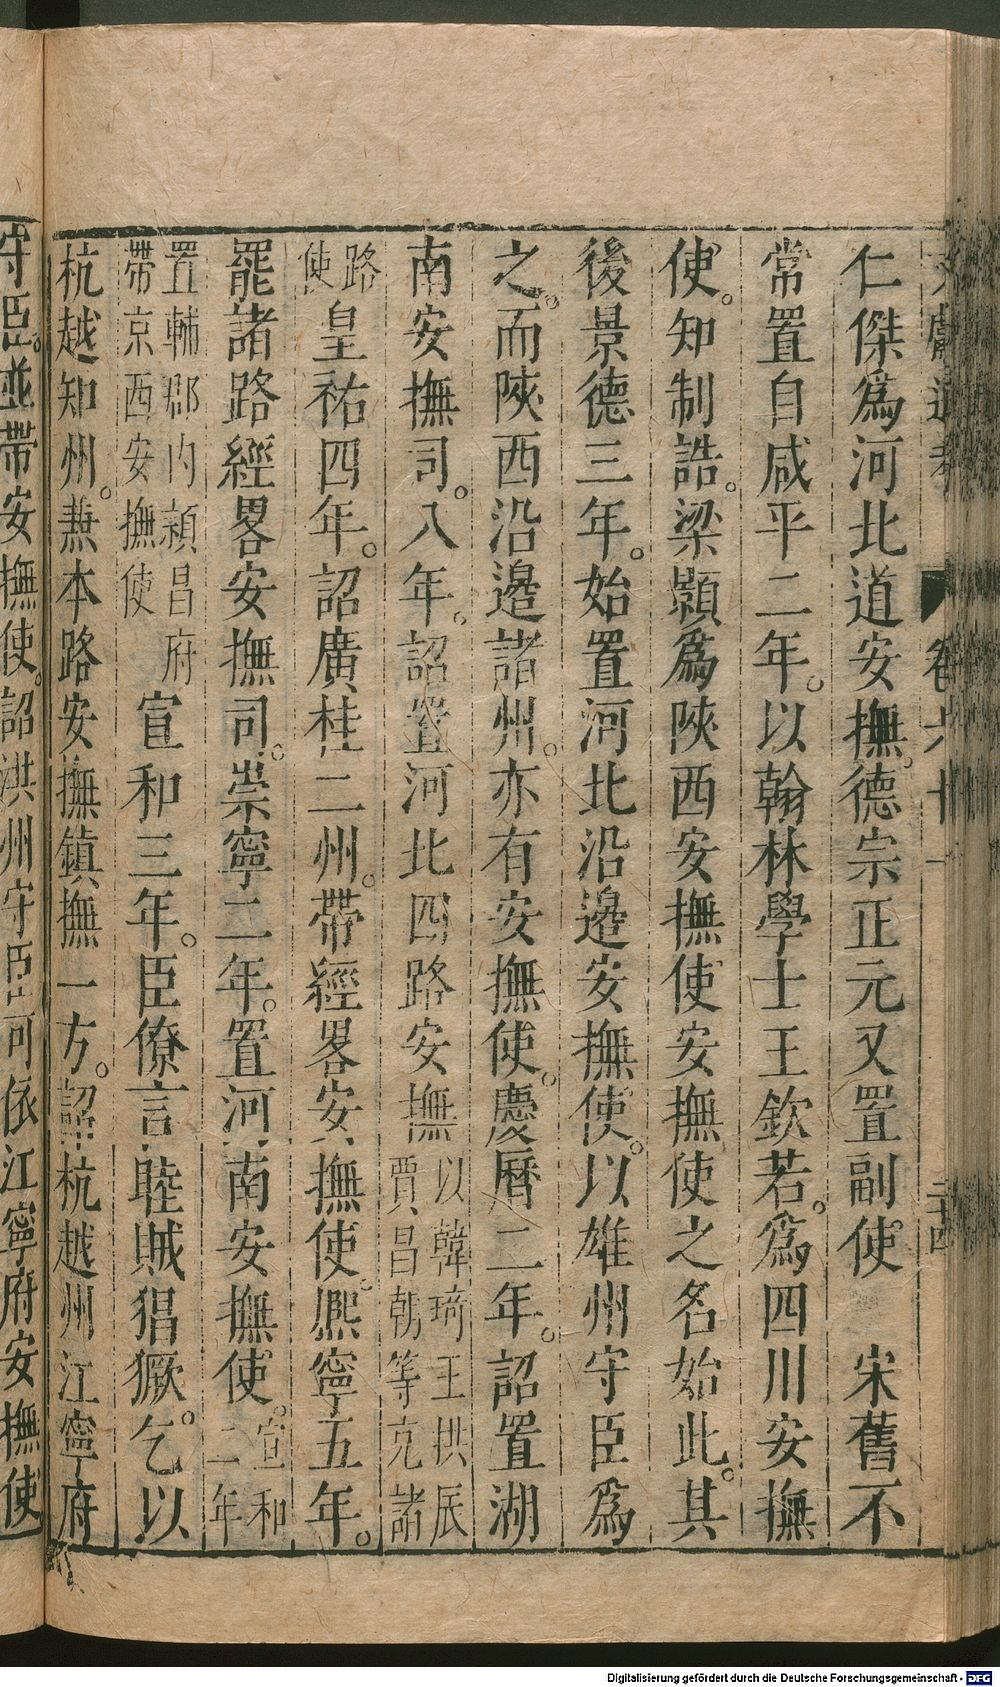 仁傑爲河北道安撫。德宗正元又置副使　宋舊不
常置自咸平二年。以翰林學士王欽若。爲四川安撫
使。知制誥。梁顥爲陝西安撫使安撫使之名始此。其
後景德三年。始置河北沿邉安撫使。以雄州守臣爲
之。而陝西沿邉諸州。亦有安撫使。慶曆二年。詔置湖
南安撫司。八年。詔置河北四路安撫以韓琦王拱辰賈昌朝等充諸
路使皇祐四年。詔廣桂二州。帶經畧安撫使。熈寧五年。
罷諸路經畧安撫司。崇寧二年。置河南安撫使。宣和二年
置輔郡内潁昌府帶京西安撫使宣和三年。臣僚言睦賊猖獗。乞以
杭越知州。兼本路安撫鎮撫一方。詔杭越州江寧府
守臣。並帶安撫使。詔洪州守臣可依江寧府安撫使
文獻通考　卷六十一　二十四
Digitalisierung gefördert durch die Deutsche Forschungsgemeinschaft - DFG